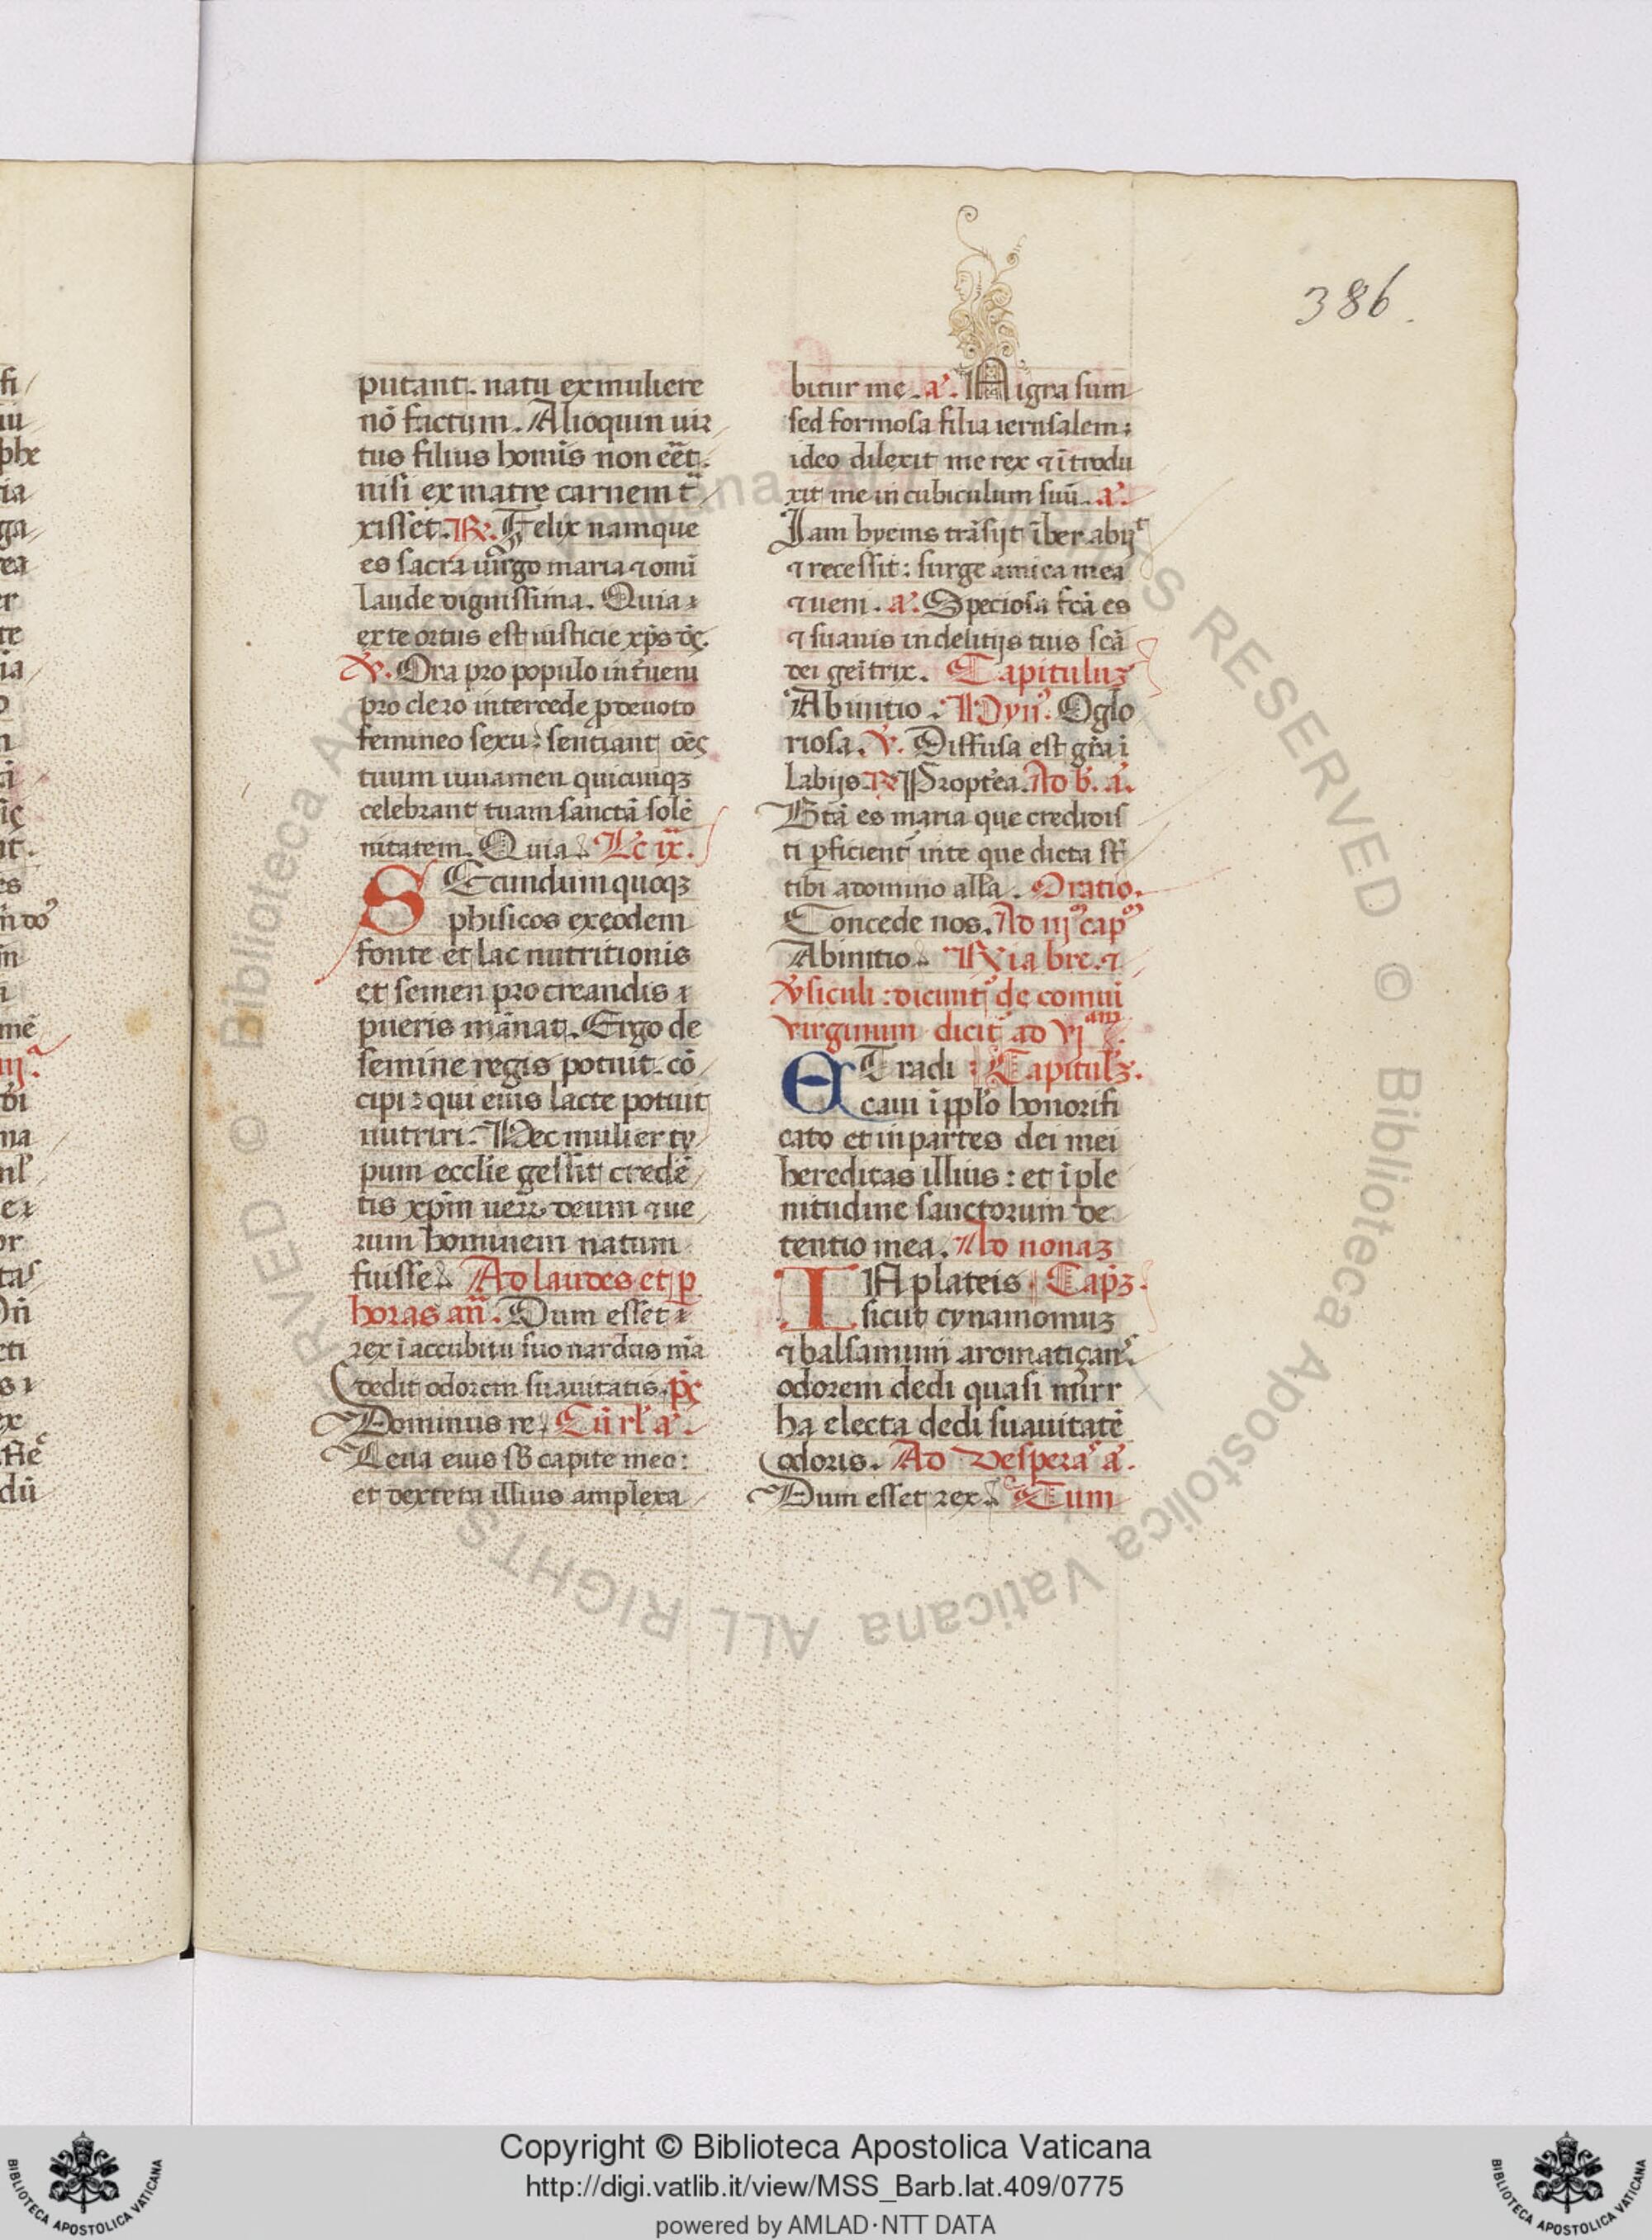 386.
putant. natū ex muliere
nō factum. Alioquin uir
tus filius homīs non eēt.
nisi ex matre carnem t̄
xisset. R. Felix namque
es sacra uirgo maria ⁊ omī
laude dignissima. Quia
ex te ortus est iusticie xp̄s ds̄.
V. Ora pro populo int̄ueni
pro clero intercede p̱ deuoto
femineo sexu: sentiant oēs
tuum iuuamen quicunqꝫ
celebrant tuam sanctā solē
nitatem. Quia. Lc̄ ix.
SEcundum quoqꝫ
phisicos ex eodem
fonte et lac nutritionis
et semen procreandis
pueris mānat. Ergo de
semine regis potuit cō
cipi ⁊ qui eius lacte potuit
nutriri. Hec mulier ty
pum eccl̄ie gessit credē
tis xp̄m ueꝝ deum ⁊ ue
rum hominem natum
fuisse. Ad laudes et p̱
horas an̄. Dum esset
rex ī accubitu suo nardus m̄a
dedit odorem suauitatis. ps̄
Dominus re. Cū rl̄ a.
Leua eius sƀ capite meo:
et dextera illius amplexa
bitur me. a. Nigra sum
sed formosa filia ierusalem:
ideo dilexit me rex ⁊ ītrodu
xit me in cubiculum suū. a.
Iam hyems trāsijt īber abijt
⁊ recessit: surge amica mea
⁊ ueni. a. Speciosa fcā es
⁊ suauis in delitijs tuis scā
dei geītrix. Capituluꝫ
Ab initio. Hyn̄. O glo
riosa. V. Diffusa est gr̄a ī
labijs. R. Propterea. Ad b. a.
Btā es maria que credidis
ti p̱ficient̄ in te que dicta st̄
tibi a domino all̄a. Oratio.
Concede nos. Ad iij cap̄
Ab initio. Rx̄ia bre. ⁊
v̄siculi: dicunt̄ de comūi
virginum dicit̄ ad vjam.
ET radi Capitulꝫ.
caui ī pp̄lo honorifi
cato et in partes dei mei
hereditas illius: et ī ple
nitudine sanctorum de
tentio mea. Ad nonaꝫ
IN plateis. Cap̄ꝫ.
sicut cynamomuꝫ
⁊ balsamum aromatiçans
odorem dedi quasi mirr
ha electa dedi suauitatē
odoris. Ad vesperas a.
Dum esset rex. Cum
fi
iu
phe
ia
ga
ea
er
te
Biblioteca Apostolica Vaticana ALL RIGHTS RESERVED ©
Copyright © Biblioteca Apostolica Vaticana
http://digi.vatlib.it/view/MSS_Barb.lat.409/0775
powered by AMLAD·NTT DATA
BIBLIOTECA APOSTOLICA VATICANA
BIBLIOTECA APOSTOLICA VATICANA